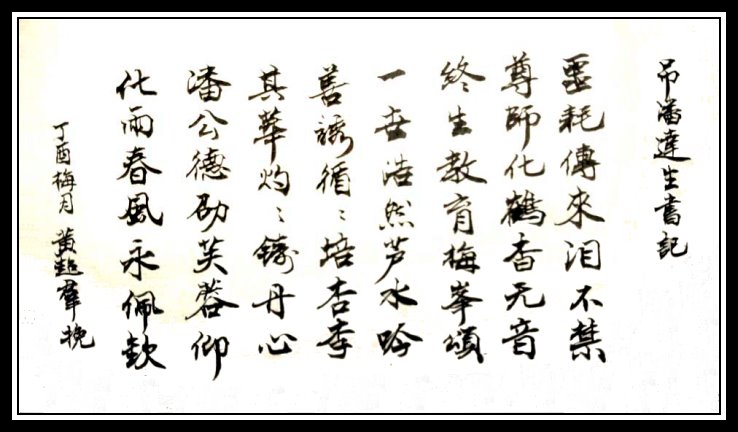 吊潘達生書記
噩耗傳來泪不禁
尊師化鶴杳无音
終生教育梅峯頌
一世浩然芦水吟
善誘循〻培杏李
其華灼〻鑄丹心
潘公德劭芙蓉仰
化雨春風永佩欽
丁酉梅月 黄超羣挽